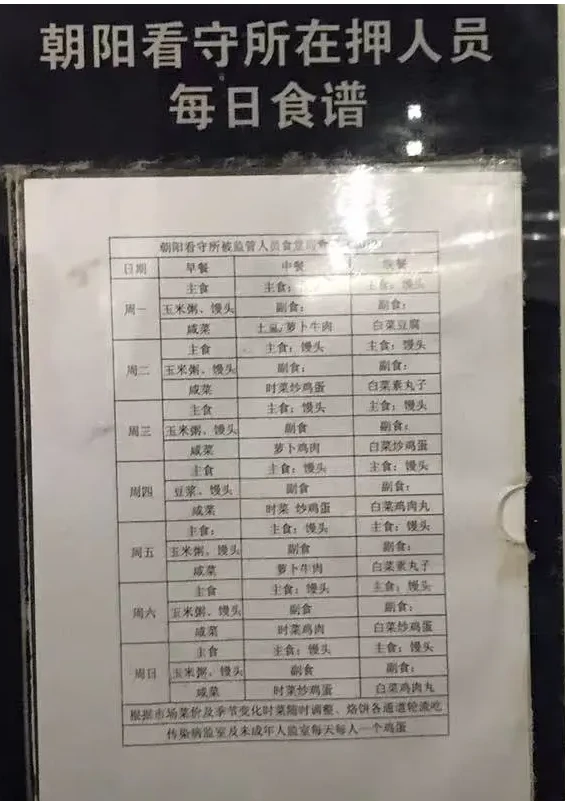 朝阳看守所在押人员
每日食谱
朝阳看守所被监管人员食堂
日期 早餐 中餐 晚餐
周一 主食 主食： 主食：馒头
玉米粥、馒头 副食： 副食：
咸菜 土豆萝卜牛肉 白菜豆腐
周二 主食 主食：馒头 主食：馒头
玉米粥、馒头 副食： 副食：
咸菜 时菜炒鸡蛋 白菜素丸子
周三 主食 主食：馒头 主食：馒头
玉米粥、馒头 副食 副食：
咸菜 萝卜鸡肉 白菜炒鸡蛋
周四 主食 主食：馒头 主食：馒头
豆浆、馒头 副食 副食：
咸菜 时菜 炒鸡蛋 白菜鸡肉丸
周五 主食： 主食：馒头 主食：馒头
玉米粥、馒头 副食 副食：
咸菜 萝卜牛肉 白菜素丸子
周六 主食 主食：馒头 主食：馒头
玉米粥、馒头 副食 副食：
咸菜 时菜鸡肉 白菜炒鸡蛋
周日 主食 主食：馒头 主食：馒头
玉米粥、馒头 副食 副食：
咸菜 时菜炒鸡蛋 白菜鸡肉丸
根据市场菜价及季节变化时菜随时调整、烙饼各通道轮流吃
传染病监室及未成年人监室每天每人一个鸡蛋